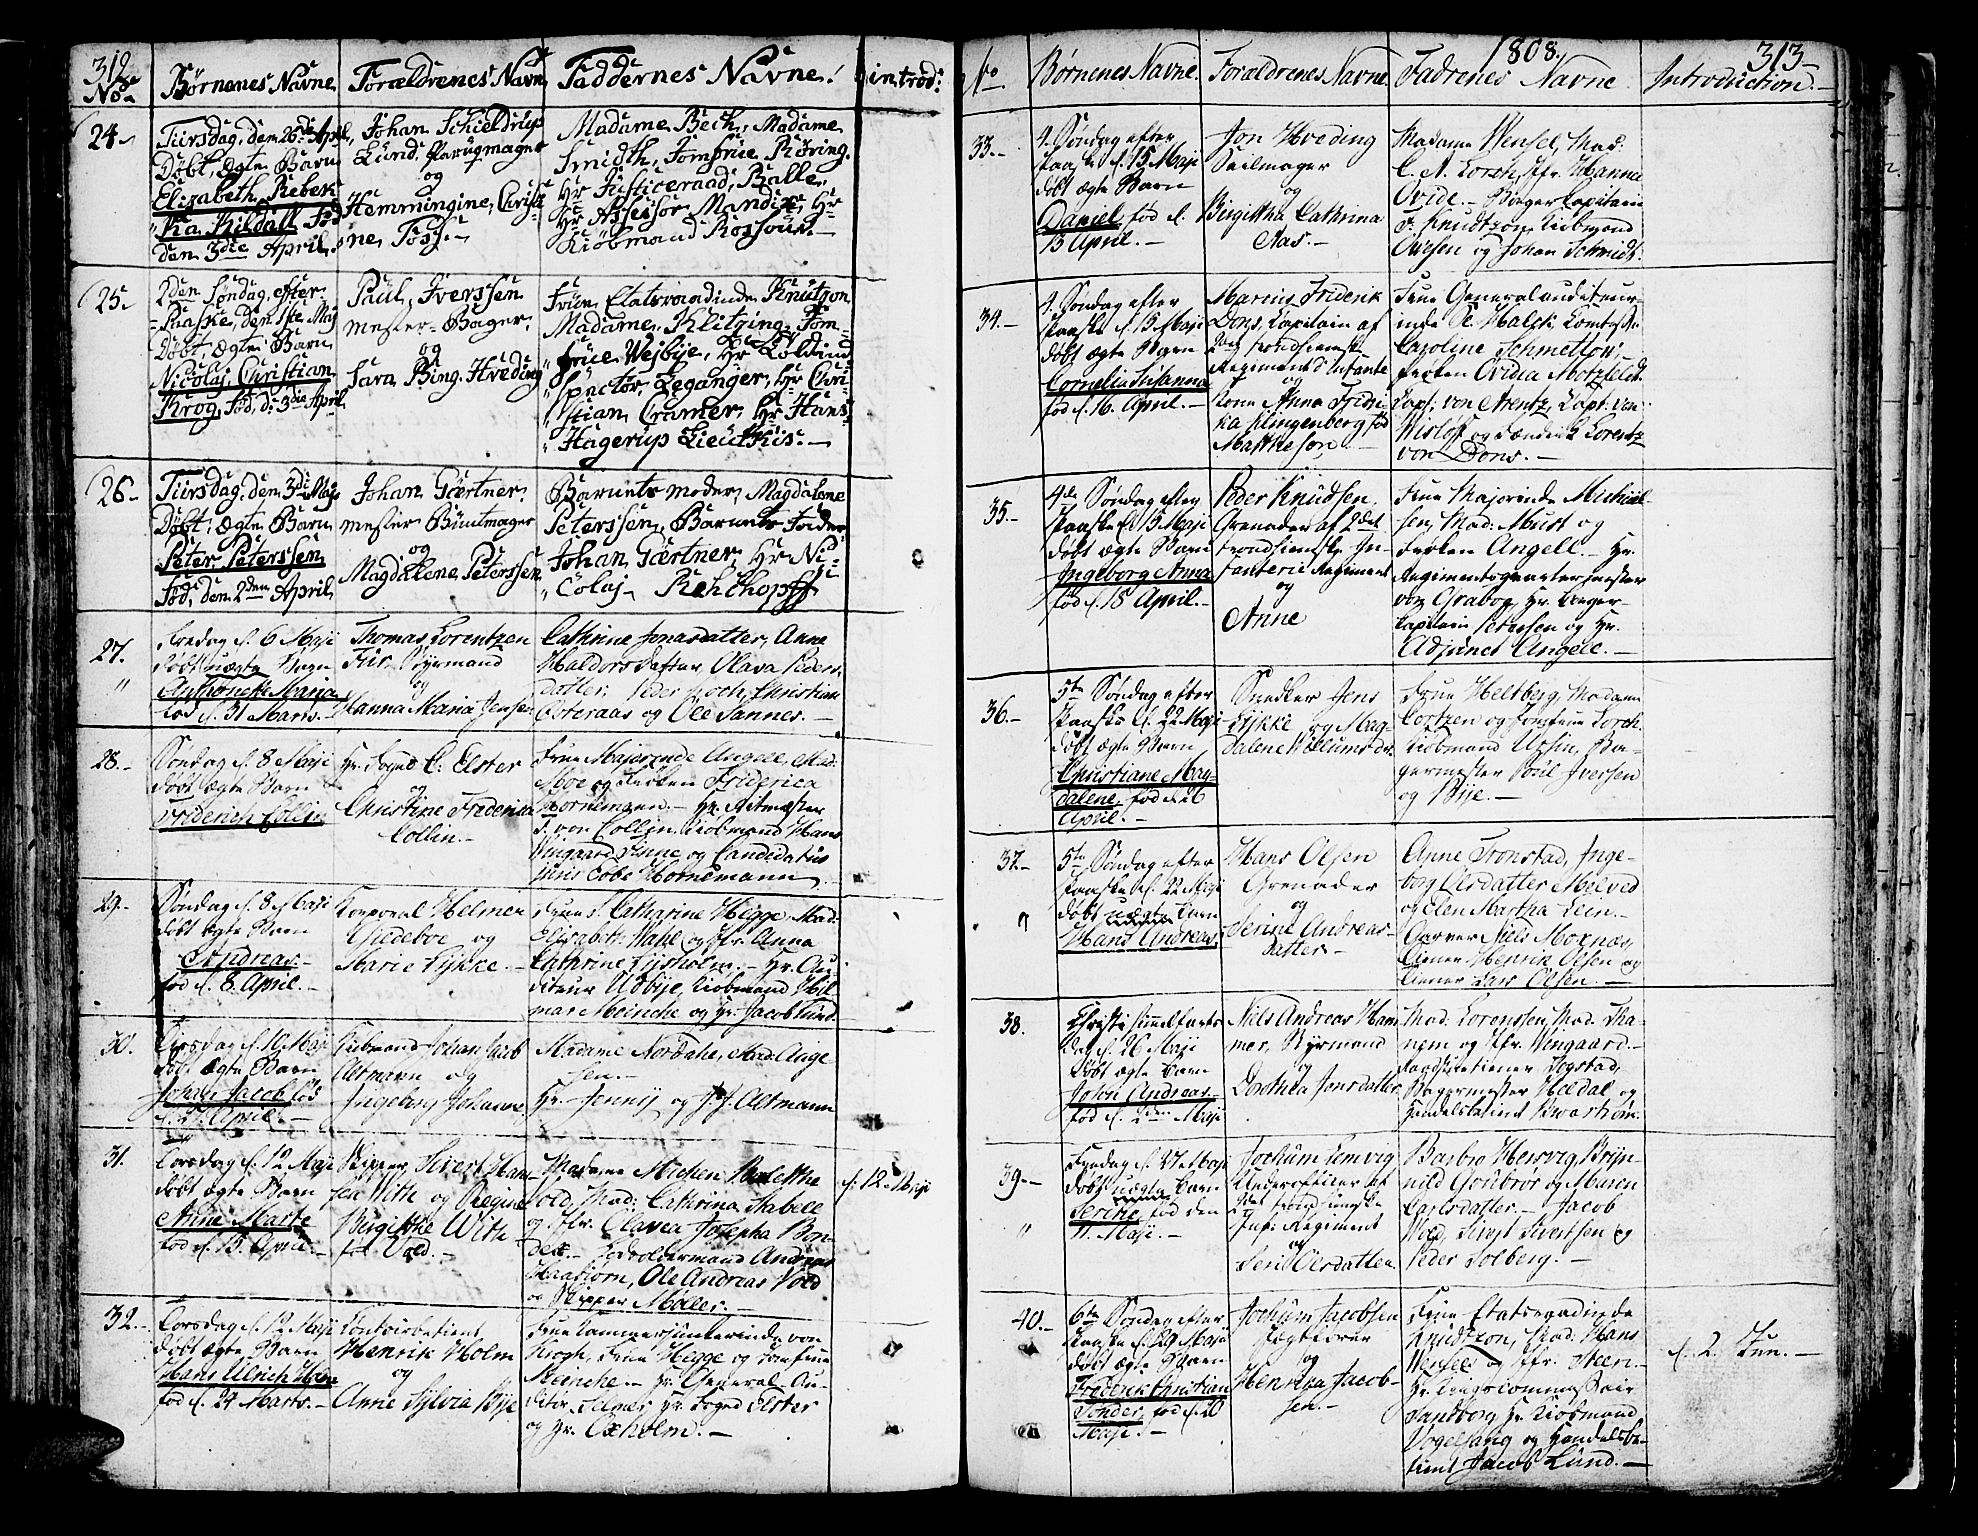 312.
No.
Börnenes Navne
Forældrenes Navn
Faddernes Navne.
introd:
24.
Tiirsdag, den 26de April,
Döbt, ægte Barn
Elizabeth Rebek-
ka Kildall Föd
den 3die April.
Johan Schieldrup
Lund, Parugmager
og
Hemmingine, Christi-
ne Tosz.
Madame Bech, Madame
Smidth, Jomfrue Röring.
Hr Justiceraad Balle,
Hr Assessor Mandix, Hr
Kiöbmand Rossouw.
25.
2den Söndag, efter
Paaske, den 1ste Maj
Döbt, ægte Barn
Nicolaj Christian
Krog, föd, d: 3die April
Paul Iverssen
mester-Bager.
og
Sara Bing Hveding
Fruen Etatsraadinde Knutzon
Madame Klitzing, Jom-
frue Wejbye, Hr Told In-
spectör, Leganger, Hr Chri-
stian Cramer, Hr Hans
Hagerup Lieut:
26.
Tiirsdag, den 3die Maj
Döbt, ægte Barn
Peter Peterssen
Föd, den 2den April
Johan Gærtner
mester Buntmager
og
Magdalene Peterssen
Barnets Moder, Magdalene
Peterssen, Barnets Fader
Johan Gærtner, Hr Ni-
colaj
27.
Fredag d. 6 Maji
döbt uægte Barn
Anthonette Maria
föd d. 31 Marts.
Thomas Lorentzen
Für Styrmand
og
Hanna Maria Jensen
Cathrine Jonasdatter, Anne
Haldorsdatter, Olava Peders-
datter. Peder Koch, Christian
Osteraas og Ole Sannes.
28.
Söndag d. 8 Maji
döbt ægte Barn
Friderich Collin
Hr. Foged C. Elster
og
Christine Friderica
Collin.
Frue Majorinde Angell, Mad:
Moe og Fröken Friderica
Hornemann. Hr. Ritmester
F. von Collin, Kiöbmand Hans
Wingaard Finne og Candidatus
juris Hornemann
29.
Söndag d. 8 Maji
döbt ægte Barn
Andreas.
föd d. 8 April.
Korporal Helmer
Giedeboe og
Marie Lykke.
Frue S. Catharine Hegge, Mad:
Elisabeth Wahl og Jfr. Anna
Cathrine Lysholm. Hr. Au-
diteur Udbye, Kiöbmand Hil-
mar Meincke og Hr. Jacob Lund.
30.
Tirsdag d. 10 Maji
döbt ægte Barn
Johan Jacob föd
d. 27 April.
Kiöbmand Johan Jacob
Altmann og
Ingeborg Johanne
Madame Nordahl, Mad. Aage-
sen.
Hr. Jenny og J. J. Altmann
31.
Torsdag d. 12 Maji
döbt ægte Barn
Anne Marte
föd d. 15 April.
Skipper Sivert Han-
sen With og Regine
Birgitte With
föd Vold.
Madame Michen Malethe
Vold, Mad: Cathrina Stabell
og Jfr. Olavea Josepha Bon-
dex. Andreas
Haabjörn, Ole Andreas Vold
og Skipper Möller.
d. 12 Maji
32.
Torsdag d. 12 Maji
döbt ægte Barn
Hans Ulrich Holm
föd d. 24 Marts.
Contoirbetient
Henrik Holm
og
Anne Sylvia Bye
Frue Kammerjunkerinde von
Krogh, Frue Hegge og Jomfrue
Meincke. Hr. General Au-
ditör Selmer, Hr. Foged Elster
og Hr. Oxholm.
1808.
313
No
Börnenes Navne.
Forældrenes Navne
Fadrenes Navne.
Introduction.
33.
4. Söndag efter
Paaske d. 15 Maji
döbt ægte Barn
Daniel föd d.
13 April.
Jon Hveding
Seilmager
og
Birgitha Cathrina
Aas.
Madame Wensel, Mad:
C. A. Lorch, Jfr. Hanna
Ovide. Borger Capitain
F. Knudtzon, Kiöbmand
Owesen og Johan Schmidt.
34.
4. Söndag efter
Paaske d. 15 Maji
döbt ægte Barn
Cornelia Susanna
föd d. 16. April.
Marcus Friderik
Dons, Capitain af
2det trondhiemske
Regiment d'Infante
og
Kone Anna Fridri-
ka Klingenberg föd
Mathheson
Frue Generalauditeur-
inde Sl. Maleh, Comtesse
Caroline Schmettow,
Fröken Ovidia Motzfeldt.
Capt: von Arentz, Capt: von
Wisloff og Lændsrik Lorentz
von Dons.
35.
4de Söndag efter
Paaske d. 15 Maji
döbt ægte Barn
Ingeborg Anna
föd d. 18 April.
Peder Knudsen
Grenader af 2det
trondhiemske In-
fanterie Regiment
og
Anne
Frue Majorinde Michael-
sen, Mad: Must og
Fröken Angell. Hr.
Regimentsqvartermester
von Grabow, Hr. Borger-
kapitain Petersen og Hr.
Adjunct Angell.
36.
5te Söndag efter
Paaske d. 22 Maji
döbt ægte Barn
Christiane Mag-
dalene, föd d. 16
April.
Snedker Jens
Lykke og Mag-
dalene Willumsdr.
Frue Heltberg, Madame
Cortzen og Jomfrue Lorch.
Kiöbmand Ursin, Ba-
germester Poul Iversen
og Bye.
37.
5te Söndag efter
Paaske d. 22 Maji
döbt uægte Barn
Hans Andreas
Hans Olsen
Grenader
og
Serine Andreas-
datter.
Anne Tronstad, Inge-
borg Olsdatter Melved
og Elen Martha Lein.
Garver Niels Moxnæs,
Tiener Henrik Olsen og
Tiener Lars Olsen.
38.
Christi Himmelfarts
Dag d. 26 Maji
döbt ægte Barn
John Andreas.
föd d. 2den Maji
Niels Andreas Ham-
mer, Styrmand
og
Dorothea Jonsdatter
Mad. Lorenssen, Mad. Tha-
nem og Jfr. Wengaard.
Togstad,
Bagermester Heldal og
Handelsbetient Kvarström.
39.
Fredag d. 27 Maji
döbt uægte Barn
Serine föd den
11. Maji.
Jochum Lemvig
Underofficier af
2det trondhiemske
Inf: Regiment
og
Seri Olsdatter
Barbro Hersvig, Bryn-
nild Gonbror og Maren
Carlsdatter. Jacob
Wold, Sivert Sivertsen og
Peder Solberg.
40.
6te Söndag efter
Paaske d. 29 Maji
döbt ægte Barn
Frederik Christian
Tonder, föd d. 20
Maji.
Jochum Jacobsen
Fogtborer
og
Henrika Jacob-
sen.
Frue Etatsraadinde
Knudtzon, Mad. Hans
Wensel og Jfr. Steen.
Hr. Krigscommissair
Sundborg, Hr. Kiöbmand
Vogelsang og Handelsbe-
tient Jacob Lund.
d. 2. Jun.